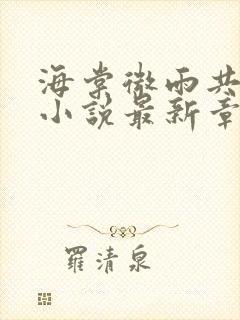 海棠微雨共
小說最新章
羅清泉